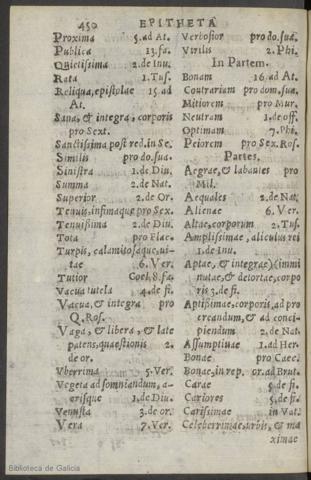 450 EPITHETA
Proxima 5. ad At.
Publica 13. fa.
Quietissima 2. de Inu.
Rata 1. Tus.
Reliqua, epistolae 15 ad
At.
Sana, & integra, corporis
pro Sext.
Sanctissima post red. in Se.
Similis pro do. sua.
Sinistra 1. de Diu.
Summa 2. de Nat.
Superior 2. de Or.
Tenuis, infimaque pro Sex.
Tenuissima 2. de Diu.
Tota pro Flac.
Turpis, calamitosaque, ui-
tae 6. Ver.
Tutior Coel. 8. fa.
Vacua tutela 4. de fi.
Vacua, & integra pro
Q. Ros.
Vaga, & libera, & late
patens, quaestionis 2.
de or.
Vberrima 5. Ver.
Vegeta ad somniandum, a-
crisque 1. de Diu.
Venusta 3. de or.
Vera 7. Ver.
Verbosior pro do. sua.
Virilis 2. Phi.
In Partem.
Bonam 16. ad At.
Contrariam pro dom. sua.
Mitiorem pro Mur.
Neutram 1. de off.
Optimam 7. Phi.
Peiorem pro Sex. Ros.
Partes.
Aegrae, & labantes pro
Mil.
Aequales 2. de Nat.
Alienae 6. Ver.
Altae, corporum 2. Tus.
Amplissimae, alicuius rei
1. de Inu.
Aptae, & integrae) (immi
nutae, & detortae, corpo
ris 3. de fi.
Aptissimae, corporis, ad pro
creandum, & ad conci-
piendum 2. de Nat.
Assumptiuae 1. ad Her.
Bonae pro Caec.
Bonae, in rep. or. ad Brut.
Carae 5. de fi.
Cariores 5. de fi.
Carissimae in Vat.
Celeberrimae, urbis, & ma
ximae
Biblioteca de Galicia